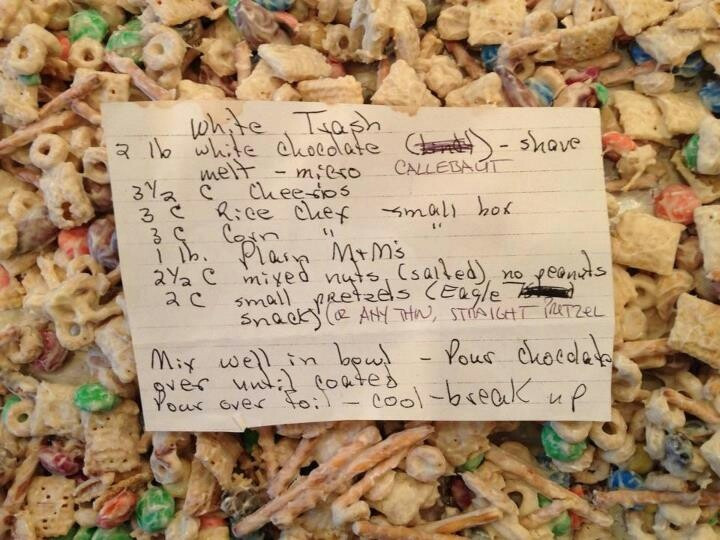 White Trash
2 lb white chocolate () - shave
melt - micro CALLEBAUT
3 1/2 C Cheerios
3 C Rice Chex - small box
3 C Corn " "
1 lb. Plain M+M's
2 1/2 C mixed nuts (salted) no peanuts
2 C small pretzels (Eagle
snack) (OR ANY THIN, STRAIGHT PRETZEL
Mix well in bowl - Pour chocolate
over until coated
Pour over foil - cool - break up